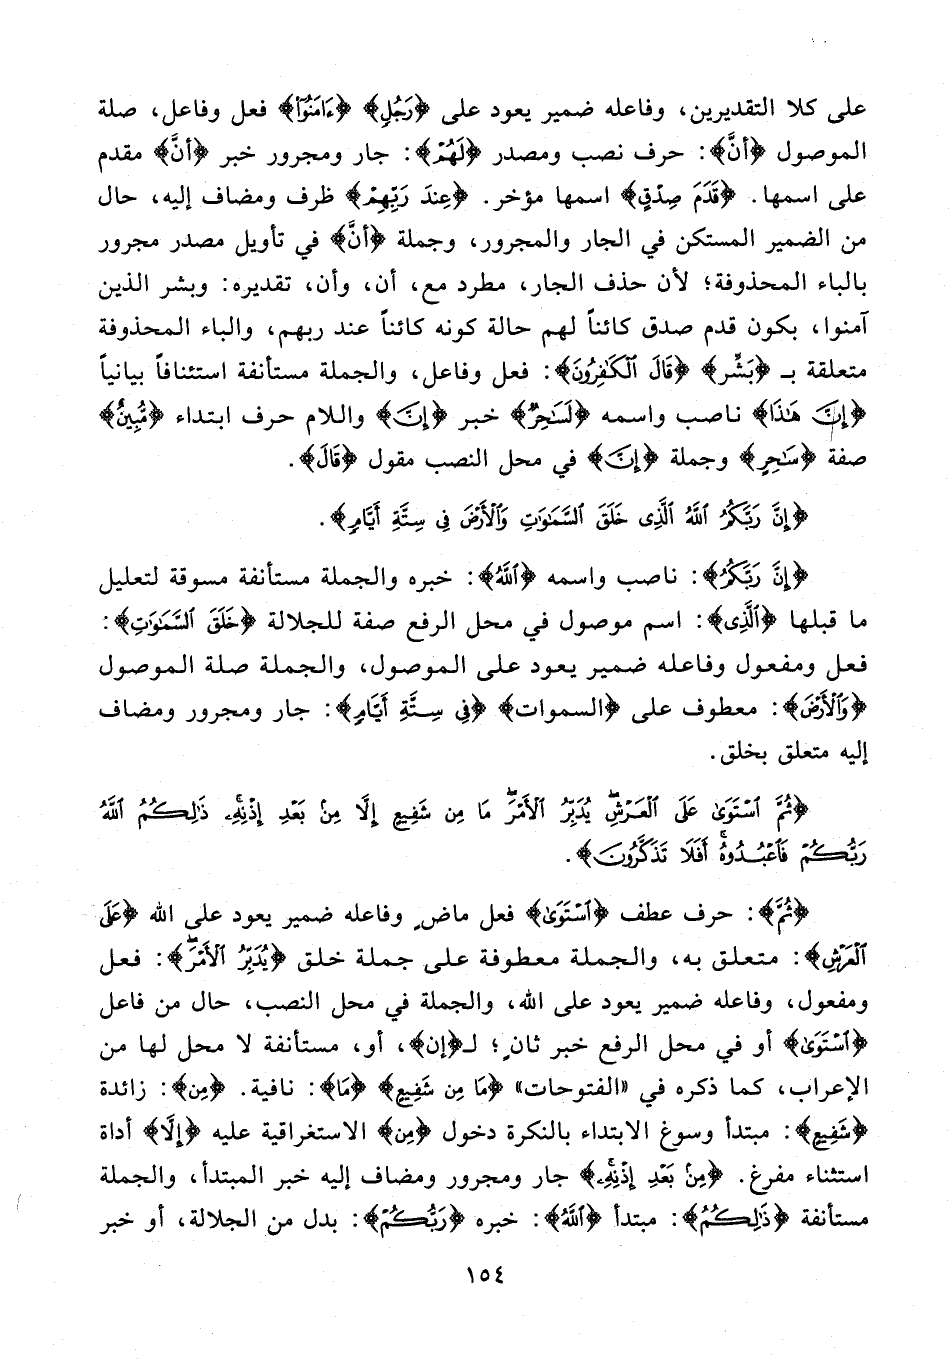 على كلا التقديرين، وفاعله ضمير يعود على ﴿رَجُلٍ﴾ ﴿ءَامَنُوٓا۟﴾ فعل وفاعل، صلة
الموصول ﴿أَنَّ﴾: حرف نصب ومصدر ﴿لَهُمْ﴾: جار ومجرور خبر ﴿أَنَّ﴾ مقدم
على اسمها. ﴿قَدَمَ صِدْقٍ﴾ اسمها مؤخر. ﴿عِندَ رَبِّهِمْ﴾ ظرف ومضاف إليه، حال
من الضمير المستكن في الجار والمجرور، وجملة ﴿أَنَّ﴾ في تأويل مصدر مجرور
بالباء المحذوفة؛ لأن حذف الجار، مطرد مع، أن، وأن، تقديره: وبشر الذين
آمنوا، بكون قدم صدق كائناً لهم حالة كونه كائناً عند ربهم، والباء المحذوفة
متعلقة بـ ﴿بَشِّر﴾ ﴿قَالَ ٱلْكَٰفِرُونَ﴾: فعل وفاعل، والجملة مستأنفة استئنافاً بيانياً
﴿إِنَّ هَٰذَا﴾ ناصب واسمه ﴿لَسَٰحِرٌ﴾ خبر ﴿إِنَّ﴾ واللام حرف ابتداء ﴿مُّبِينٌ﴾
صفة ﴿سَٰحِرٍ﴾ وجملة ﴿إِنَّ﴾ في محل النصب مقول ﴿قَالَ﴾.
﴿إِنَّ رَبَّكُمُ ٱللَّهُ ٱلَّذِى خَلَقَ ٱلسَّمَٰوَٰتِ وَٱلْأَرْضَ فِى سِتَّةِ أَيَّامٍ﴾.
﴿إِنَّ رَبَّكُمُ﴾: ناصب واسمه ﴿ٱللَّهُ﴾: خبره والجملة مستأنفة مسوقة لتعليل
ما قبلها ﴿ٱلَّذِى﴾: اسم موصول في محل الرفع صفة للجلالة ﴿خَلَقَ ٱلسَّمَٰوَٰتِ﴾:
فعل ومفعول وفاعله ضمير يعود على الموصول، والجملة صلة الموصول
﴿وَٱلْأَرْضَ﴾: معطوف على ﴿السموات﴾ ﴿فِى سِتَّةِ أَيَّامٍ﴾: جار ومجرور ومضاف
إليه متعلق بخلق.
﴿ثُمَّ ٱسْتَوَىٰ عَلَى ٱلْعَرْشِۖ يُدَبِّرُ ٱلْأَمْرَۖ مَا مِن شَفِيعٍ إِلَّا مِنۢ بَعْدِ إِذْنِهِۦۚ ذَٰلِكُمُ ٱللَّهُ
رَبُّكُمْ فَٱعْبُدُوهُۚ أَفَلَا تَذَكَّرُونَ﴾.
﴿ثُمَّ﴾: حرف عطف ﴿ٱسْتَوَىٰ﴾ فعل ماضٍ وفاعله ضمير يعود على الله ﴿عَلَى
ٱلْعَرْشِ﴾: متعلق به، والجملة معطوفة على جملة خلق ﴿يُدَبِّرُ ٱلْأَمْرَۖ﴾: فعل
ومفعول، وفاعله ضمير يعود على الله، والجملة في محل النصب، حال من فاعل
﴿ٱسْتَوَىٰ﴾ أو في محل الرفع خبر ثانٍ؛ لـ﴿إن﴾، أو، مستأنفة لا محل لها من
الإعراب، كما ذكره في «الفتوحات» ﴿مَا مِن شَفِيعٍ﴾ ﴿مَا﴾: نافية. ﴿مِن﴾: زائدة
﴿شَفِيعٍ﴾: مبتدأ وسوغ الابتداء بالنكرة دخول ﴿مِن﴾ الاستغراقية عليه ﴿إِلَّا﴾ أداة
استثناء مفرغ. ﴿مِنۢ بَعْدِ إِذْنِهِۦۚ﴾ جار ومجرور ومضاف إليه خبر المبتدأ، والجملة
مستأنفة ﴿ذَٰلِكُمُ﴾: مبتدأ ﴿ٱللَّهُ﴾: خبره ﴿رَبُّكُمْ﴾: بدل من الجلالة، أو خبر
١٥٤